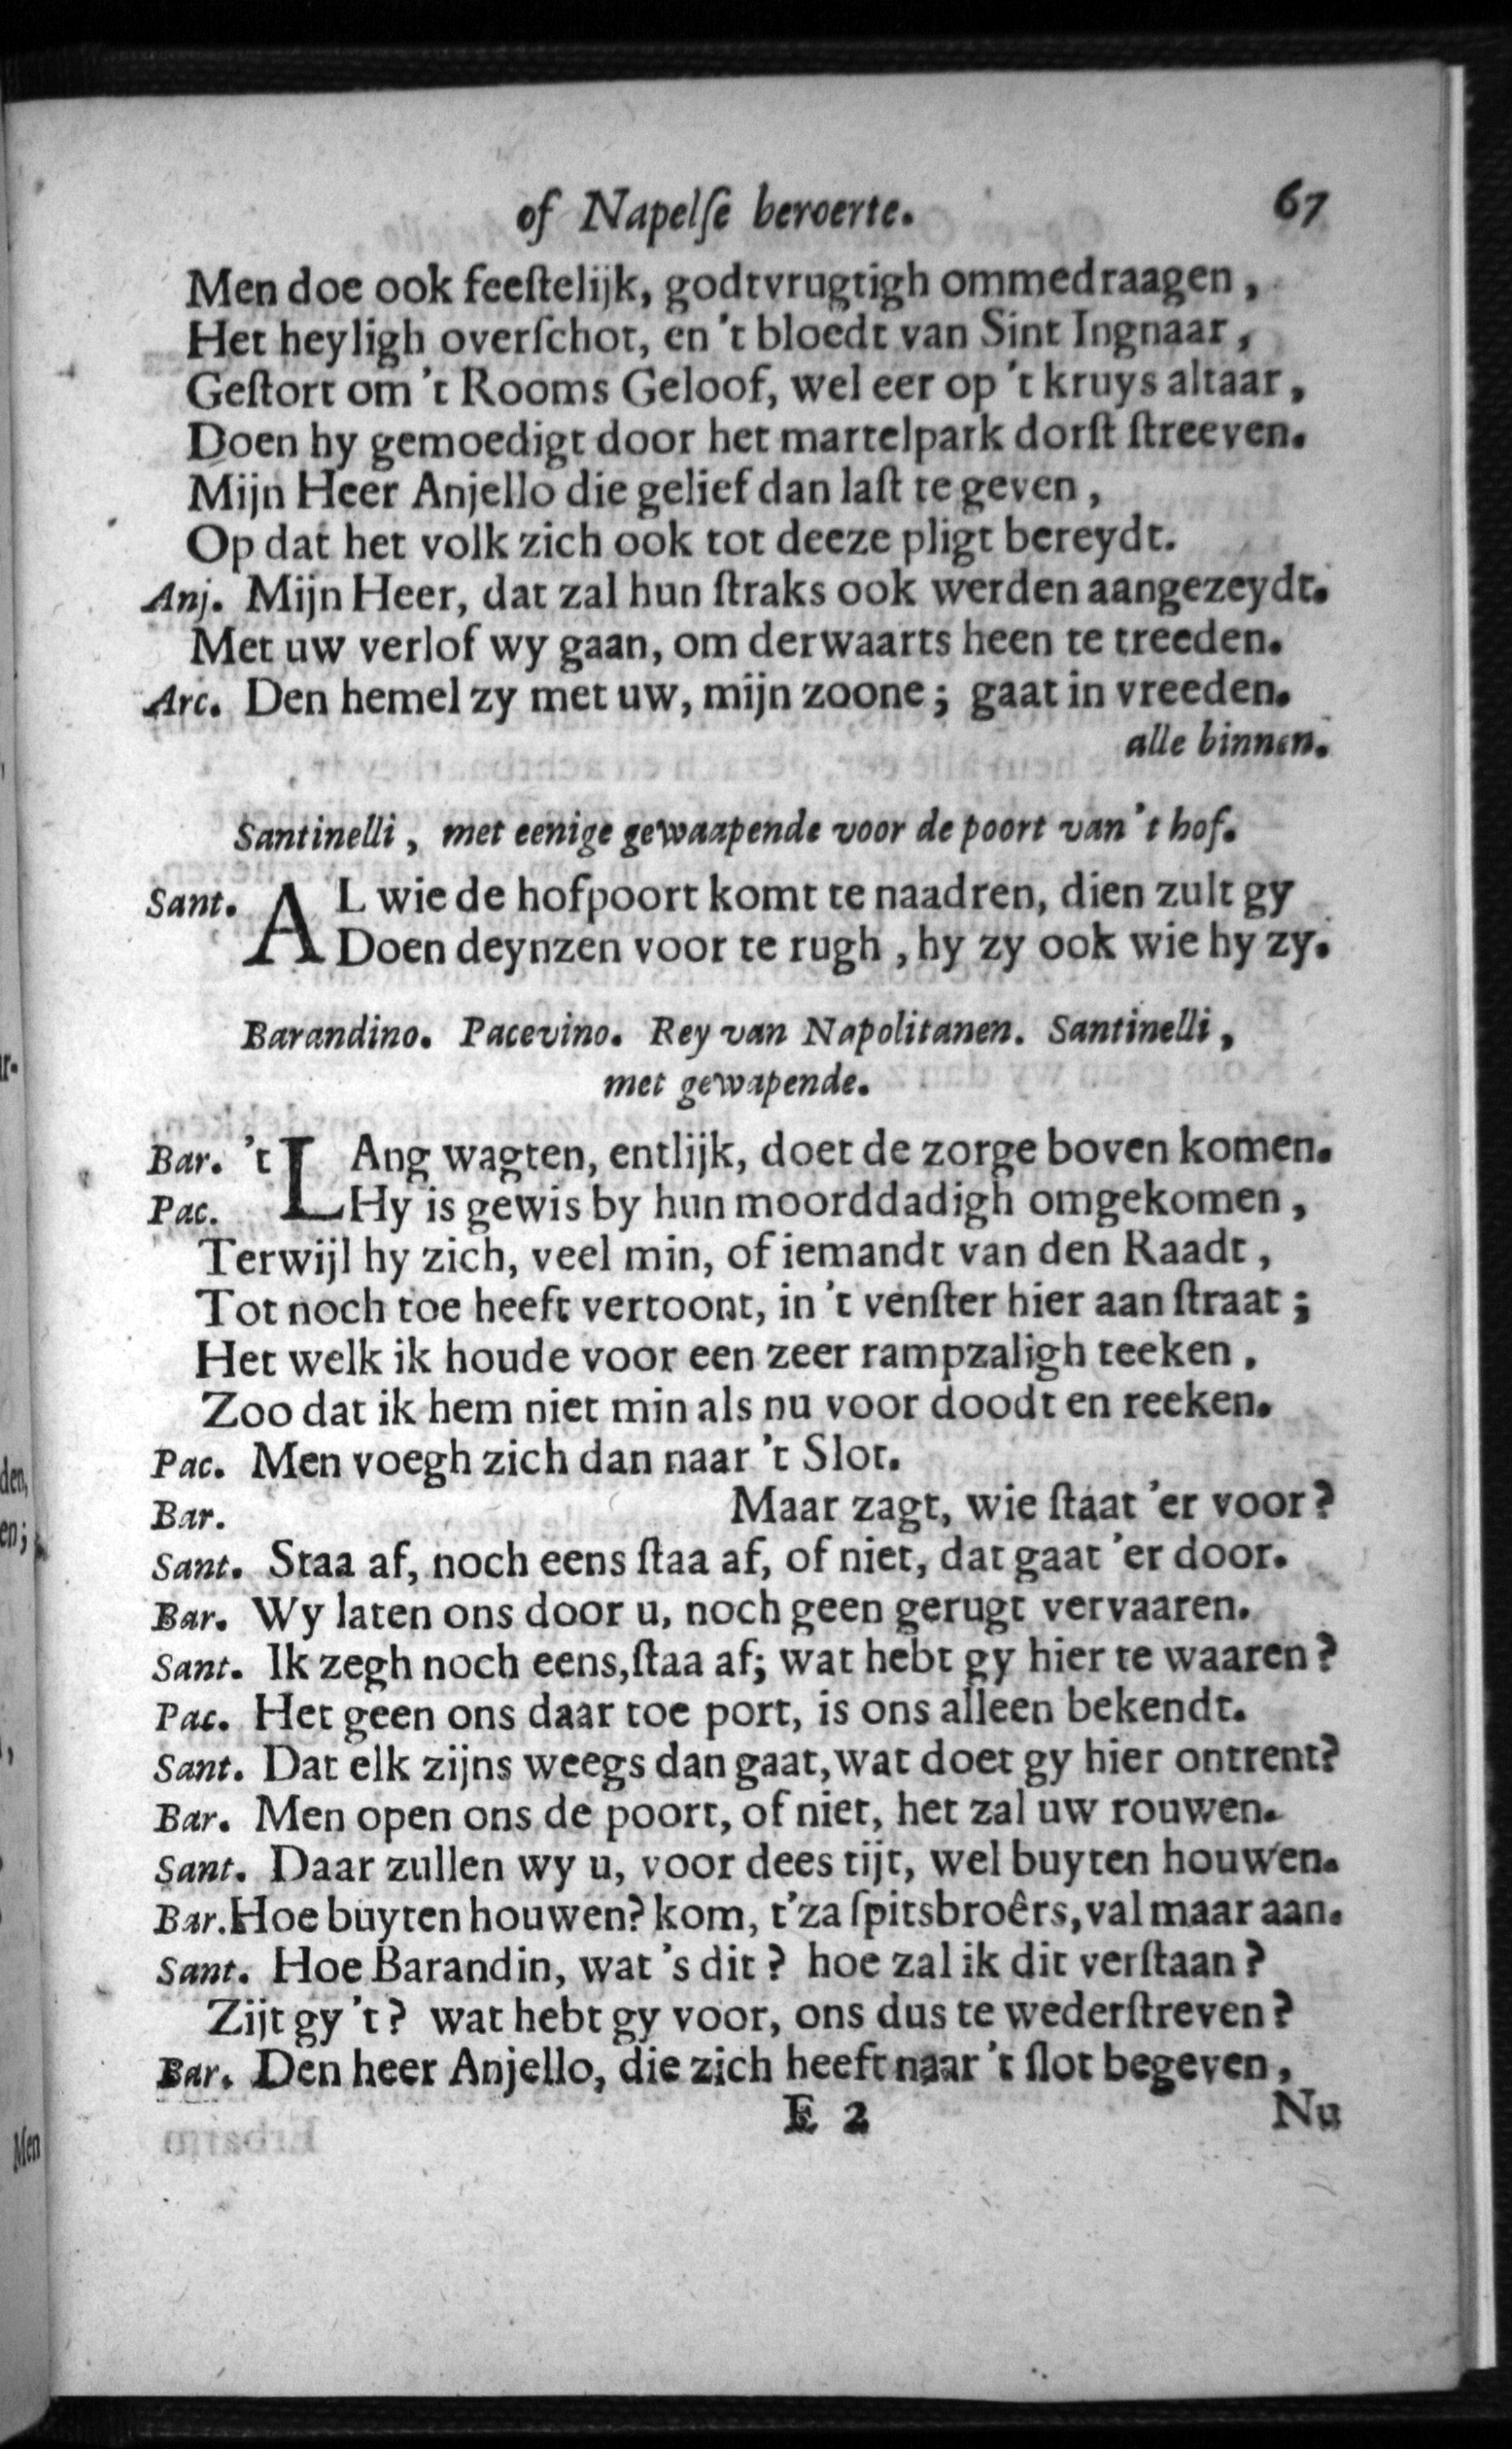 of Napelſe beroerte. 67
Men doe ook feeſtelijk, godtvrugtigh ommedraagen,
Het heyligh overſchot, en 't bloedt van Sint Ingnaar,
Geſtort om 't Rooms Geloof, wel eer op 't kruys altaar,
Doen hy gemoedigt door het martelpark dorſt ſtreeven.
Mijn Heer Anjello die gelief dan laſt te geven,
Op dat het volk zich ook tot deeze pligt bereydt.
Anj. Mijn Heer, dat zal hun ſtraks ook werden aangezeydt.
Met uw verlof wy gaan, om derwaarts heen te treeden.
Arc. Den hemel zy met uw, mijn zoone; gaat in vreeden.
alle binnen.
Santinelli, met eenige gewaapende voor de poort van 't hof.
Sant. AL wie de hofpoort komt te naadren, dien zult gy
Doen deynzen voor te rugh, hy zy ook wie hy zy.
Barandino. Pacevino. Rey van Napolitanen. Santinelli,
met gewapende.
Bar. 't LAng wagten, entlijk, doet de zorge boven komen.
Pac. Hy is gewis by hun moorddadigh omgekomen,
Terwijl hy zich, veel min, of iemandt van den Raadt,
Tot noch toe heeft vertoont, in 't venſter hier aan ſtraat;
Het welk ik houde voor een zeer rampzaligh teeken,
Zoo dat ik hem niet min als nu voor doodt en reeken.
Pac. Men voegh zich dan naar 't Slot.
Bar. Maar zagt, wie ſtaat 'er voor?
Sant. Staa af, noch eens ſtaa af, of niet, dat gaat 'er door.
Bar. Wy laten ons door u, noch geen gerugt vervaaren.
Sant. Ik zegh noch eens, ſtaa af; wat hebt gy hier te waaren?
Pac. Het geen ons daar toe port, is ons alleen bekendt.
Sant. Dat elk zijns weegs dan gaat, wat doet gy hier ontrent?
Bar. Men open ons de poort, of niet, het zal uw rouwen.
Sant. Daar zullen wy u, voor dees tijt, wel buyten houwen.
Bar. Hoe buyten houwen? kom, t'za ſpitsbroêrs, val maar aan.
Sant. Hoe Barandin, wat 's dit? hoe zal ik dit verſtaan?
Zijt gy 't? wat hebt gy voor, ons dus te wederſtreven?
Bar. Den heer Anjello, die zich heeft naar 't ſlot begeven,
E 2 Nu